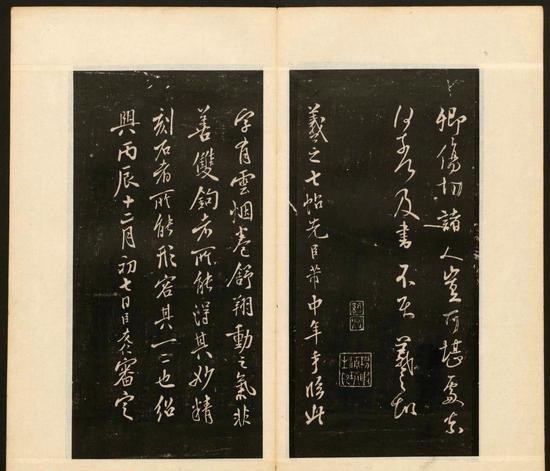 卿傷切諸人豈可堪處奈
何奈何及書不羲之
羲之七帖先臣芾中年手臨此
字有雲烟卷舒翔動之氣非
善雙鉤者所能得其妙精
刻石者所能形容其一二也紹
興丙辰十二月初七日臣友仁審定